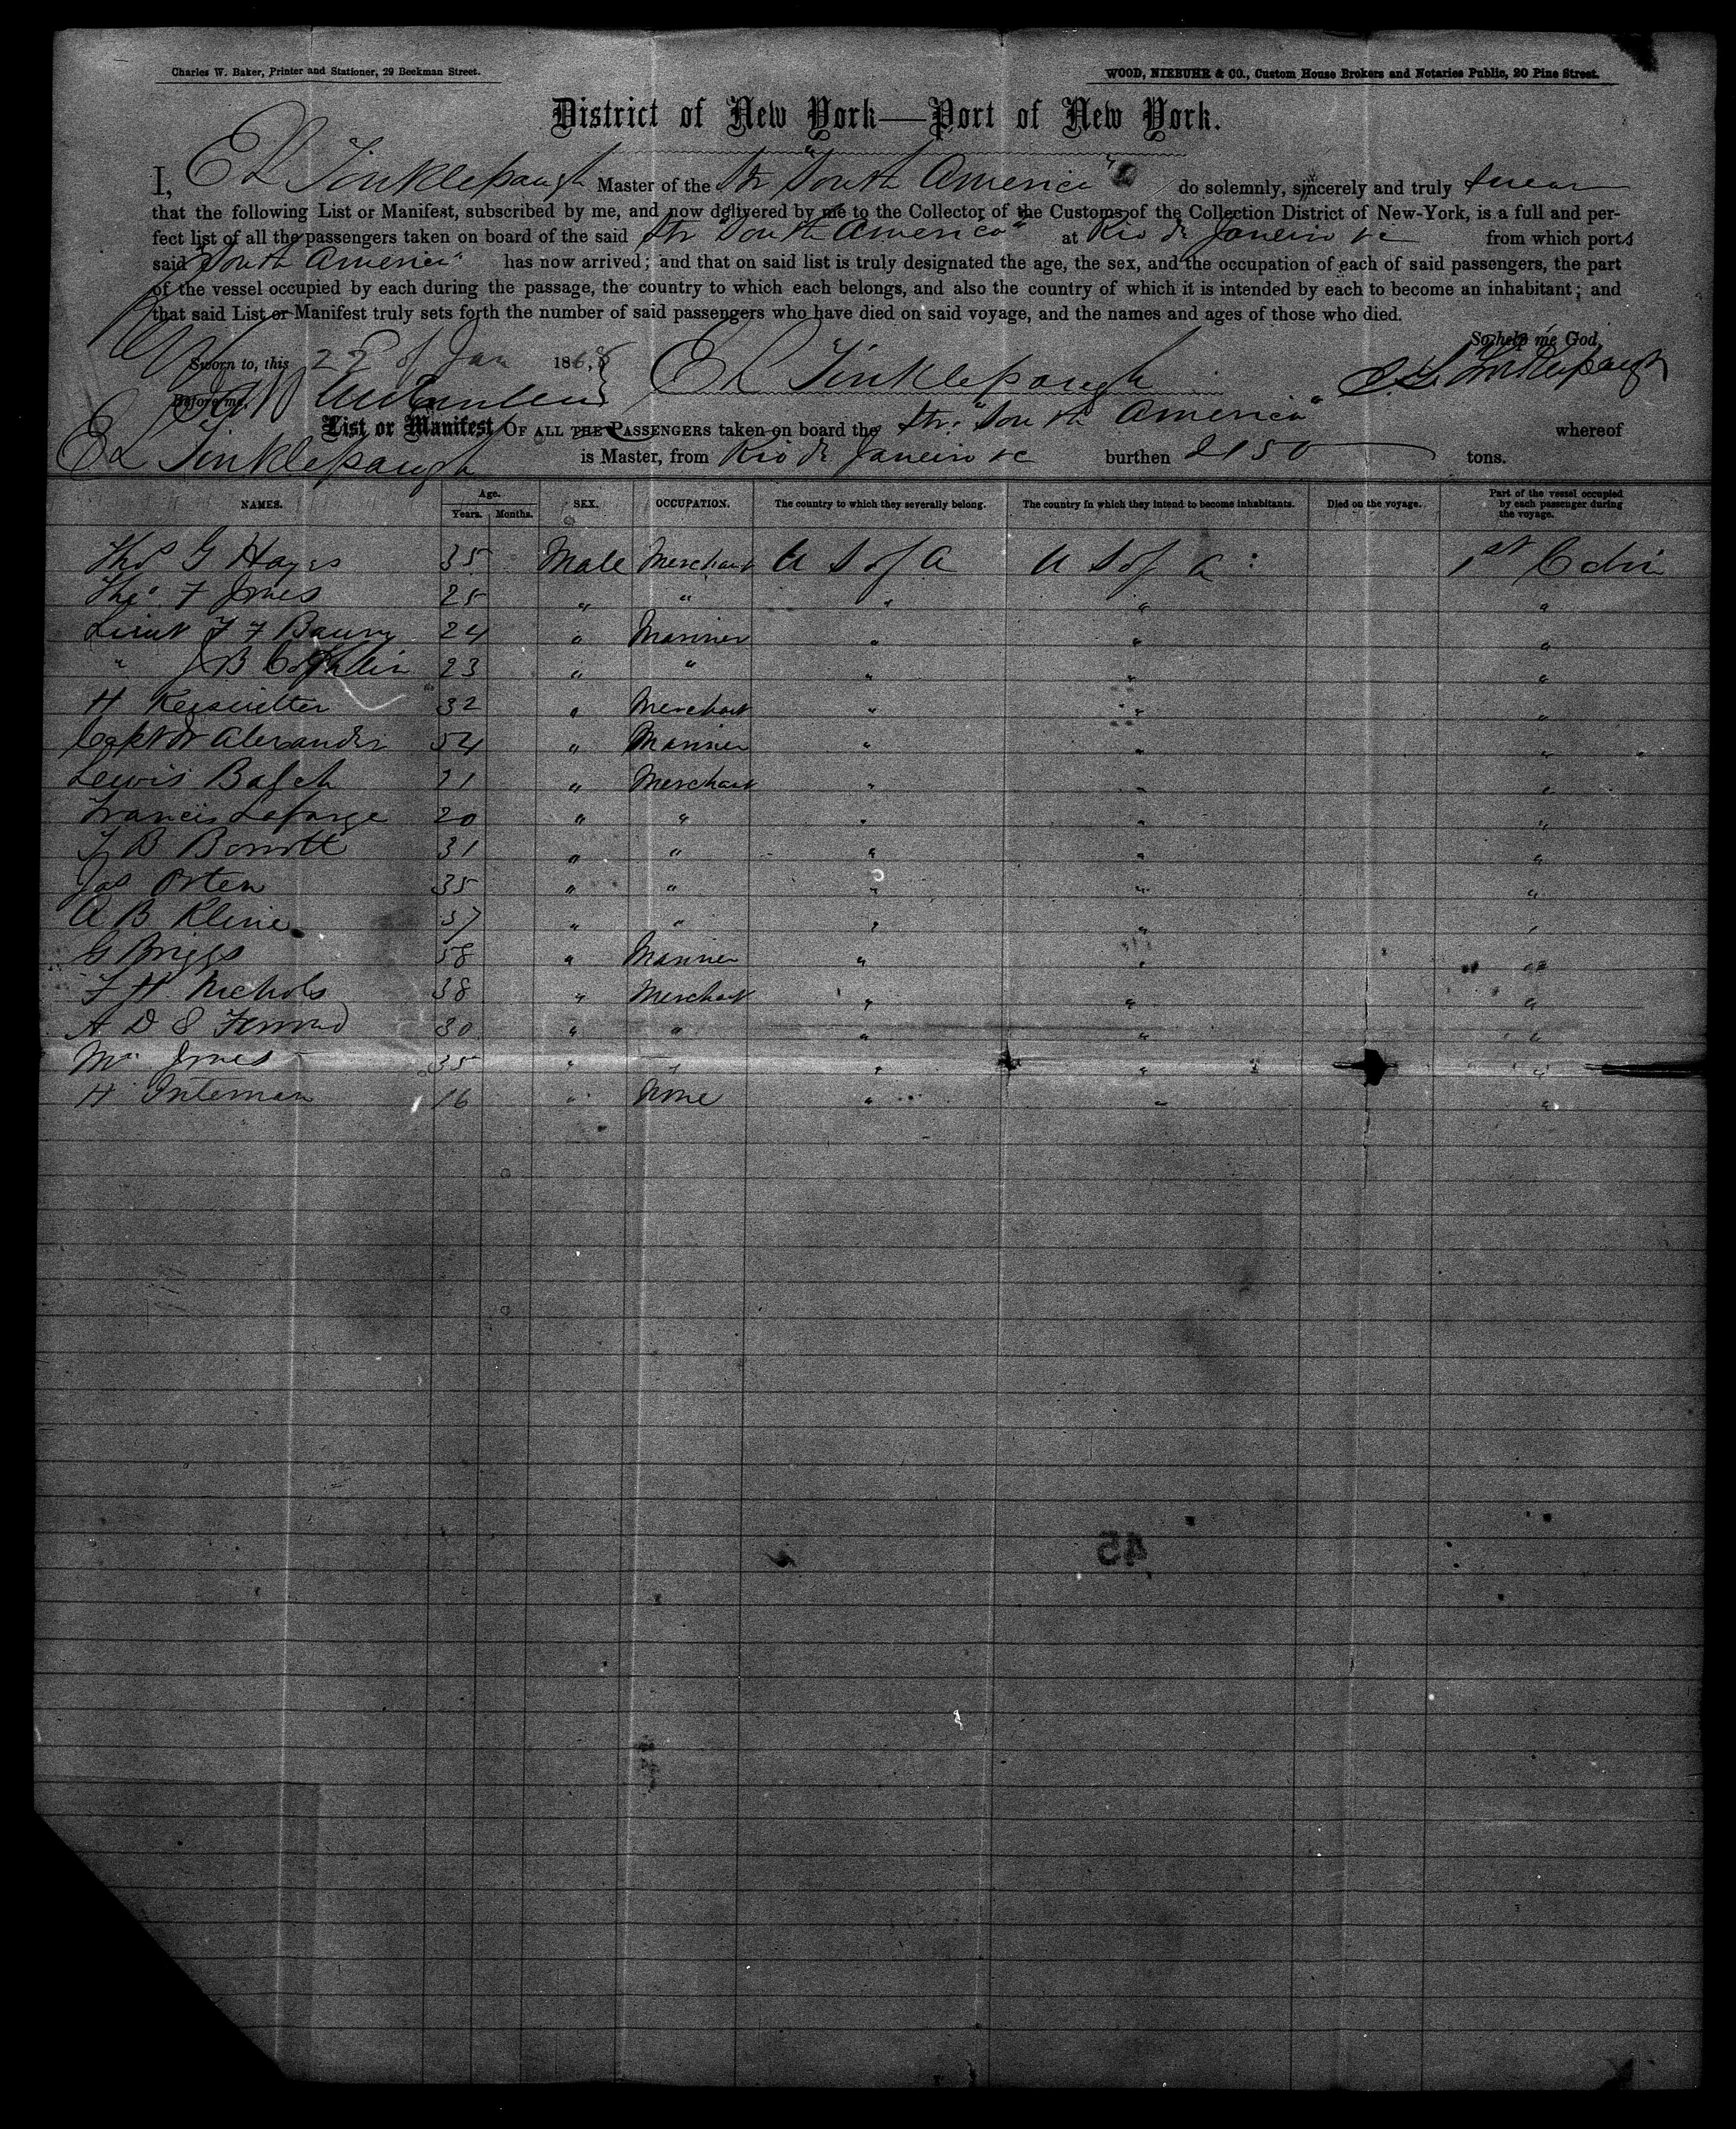 Charles W. Baker, Printer and Stationer, 29 Beekman Street.
WOOD, NIEBUHR & CO., Custom House Brokers and Notaries Public, 20 Pine Street.
District of New York—Port of New York.
I, E L Tinklepaugh Master of the Str "South America" do solemnly, sincerely and truly swear
that the following List or Manifest, subscribed by me, and now delivered by me to the Collector of the Customs of the Collection District of New-York, is a full and per-
fect list of all the passengers taken on board of the said Str "South America" at Rio de Janeiro &c from which ports
said "South America" has now arrived; and that on said list is truly designated the age, the sex, and the occupation of each of said passengers, the part
of the vessel occupied by each during the passage, the country to which each belongs, and also the country of which it is intended by each to become an inhabitant; and
that said List or Manifest truly sets forth the number of said passengers who have died on said voyage, and the names and ages of those who died.
So help me God,
Sworn to, this of Jan 1868 E L Tinklepaugh E L Tinklepaugh
Before me,
List or Manifest OF ALL THE PASSENGERS taken on board the Str. "South America" whereof
E L Tinklepaugh is Master, from Rio de Janeiro &c burthen 2150 tons.
NAMES. Age. Years. Months. SEX. OCCUPATION. The country to which they severally belong. The country in which they intend to become inhabitants. Died on the voyage. Part of the vessel occupied by each passenger during the voyage.
Thos G Hayes 35 Male Merchant U S of A U S of A : 1st Cabin
Thos. F Jones 25 " " " " "
Lieut F F Baury 24 " Mariner " " "
" J B Coghlin 23 " " " " "
H 32 " Merchant " " "
Capt Alexander 54 " Mariner " " "
Lewis Balch 21 " Merchant " " "
Francis Lafarge 20 " " " " "
B 31 " " " " "
Jas Orten 35 " " " " "
A B Kline 37 " " " " "
G Briggs 58 " Mariner " " "
F H Nichols 38 " Merchant " " "
A D S 30 " " " " "
Mr Jones 35 " " " " "
H Inteman 16 " None " " "
45